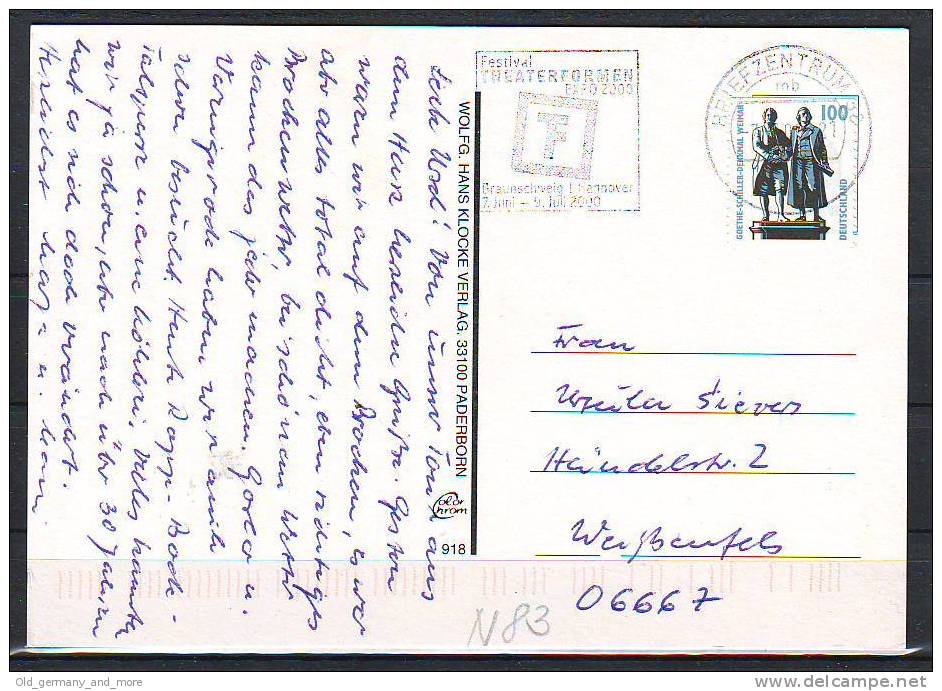 Liebe Usch! Von unserer Tour aus
dem Harz herzliche Grüße. Gestern
waren wir auf dem Brocken, es war
aber alles total dicht, eben richtiges
Brockenwetter, bei schönem Wetter
kann das jeder machen. Goslar u.
Wernigerode haben wir auch
schon besucht. Heute Rapp-Bode-
Talsperre u. eine Höhle. Alles kannten
wir ja schon, aber nach über 30 Jahren
hat es sich doch verändert.
Herzlichst
WOLFG. HANS KLOCKE VERLAG. 33100 PADERBORN
Color
chrom
918
Festival
THEATERFORMEN
EXPO 2000
F
Braunschweig | Hannover
7. Juni - 9. Juli 2000
BRIEFZENTRUM
mb
100
GOETHE-SCHILLER-DENKMAL WEIMAR
DEUTSCHLAND
Frau
Ursula Siever
Händelstr. 2
Weißenfels
06667
N83
Old_germany_and_more
www.delcampe.net